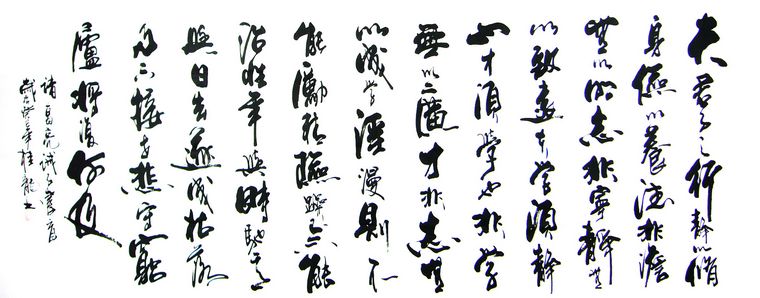 夫君子之行靜以脩
身儉以養德非澹
無以明志非寧靜無
以致遠夫學須靜
也才須學也非學
無以廣才非志無
以成學淫漫則不
能勵精險躁不能
治性年與時馳意
與日去遂成枯落
多不接世悲守窮
廬將復何及
諸葛亮誡子書